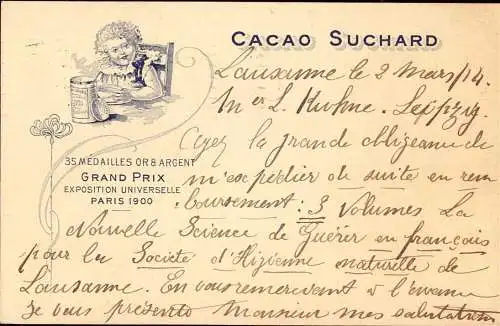 CACAO SUCHARD
Lausanne le 2 Mars/14.
Mr L. Kuhne. Leipzig.
Ayez la grande obligeance de
35 MÉDAILLES OR & ARGENT
GRAND PRIX
EXPOSITION UNIVERSELLE
PARIS 1900
m'expédier de suite en rem
boursement: 3 Volumes La
Nouvelle Science de Guérir en français
pour la Société d'Higienne naturelle de
Lausanne. En vous remerciant à l'avance
je vous présente Monsieur mes salutations